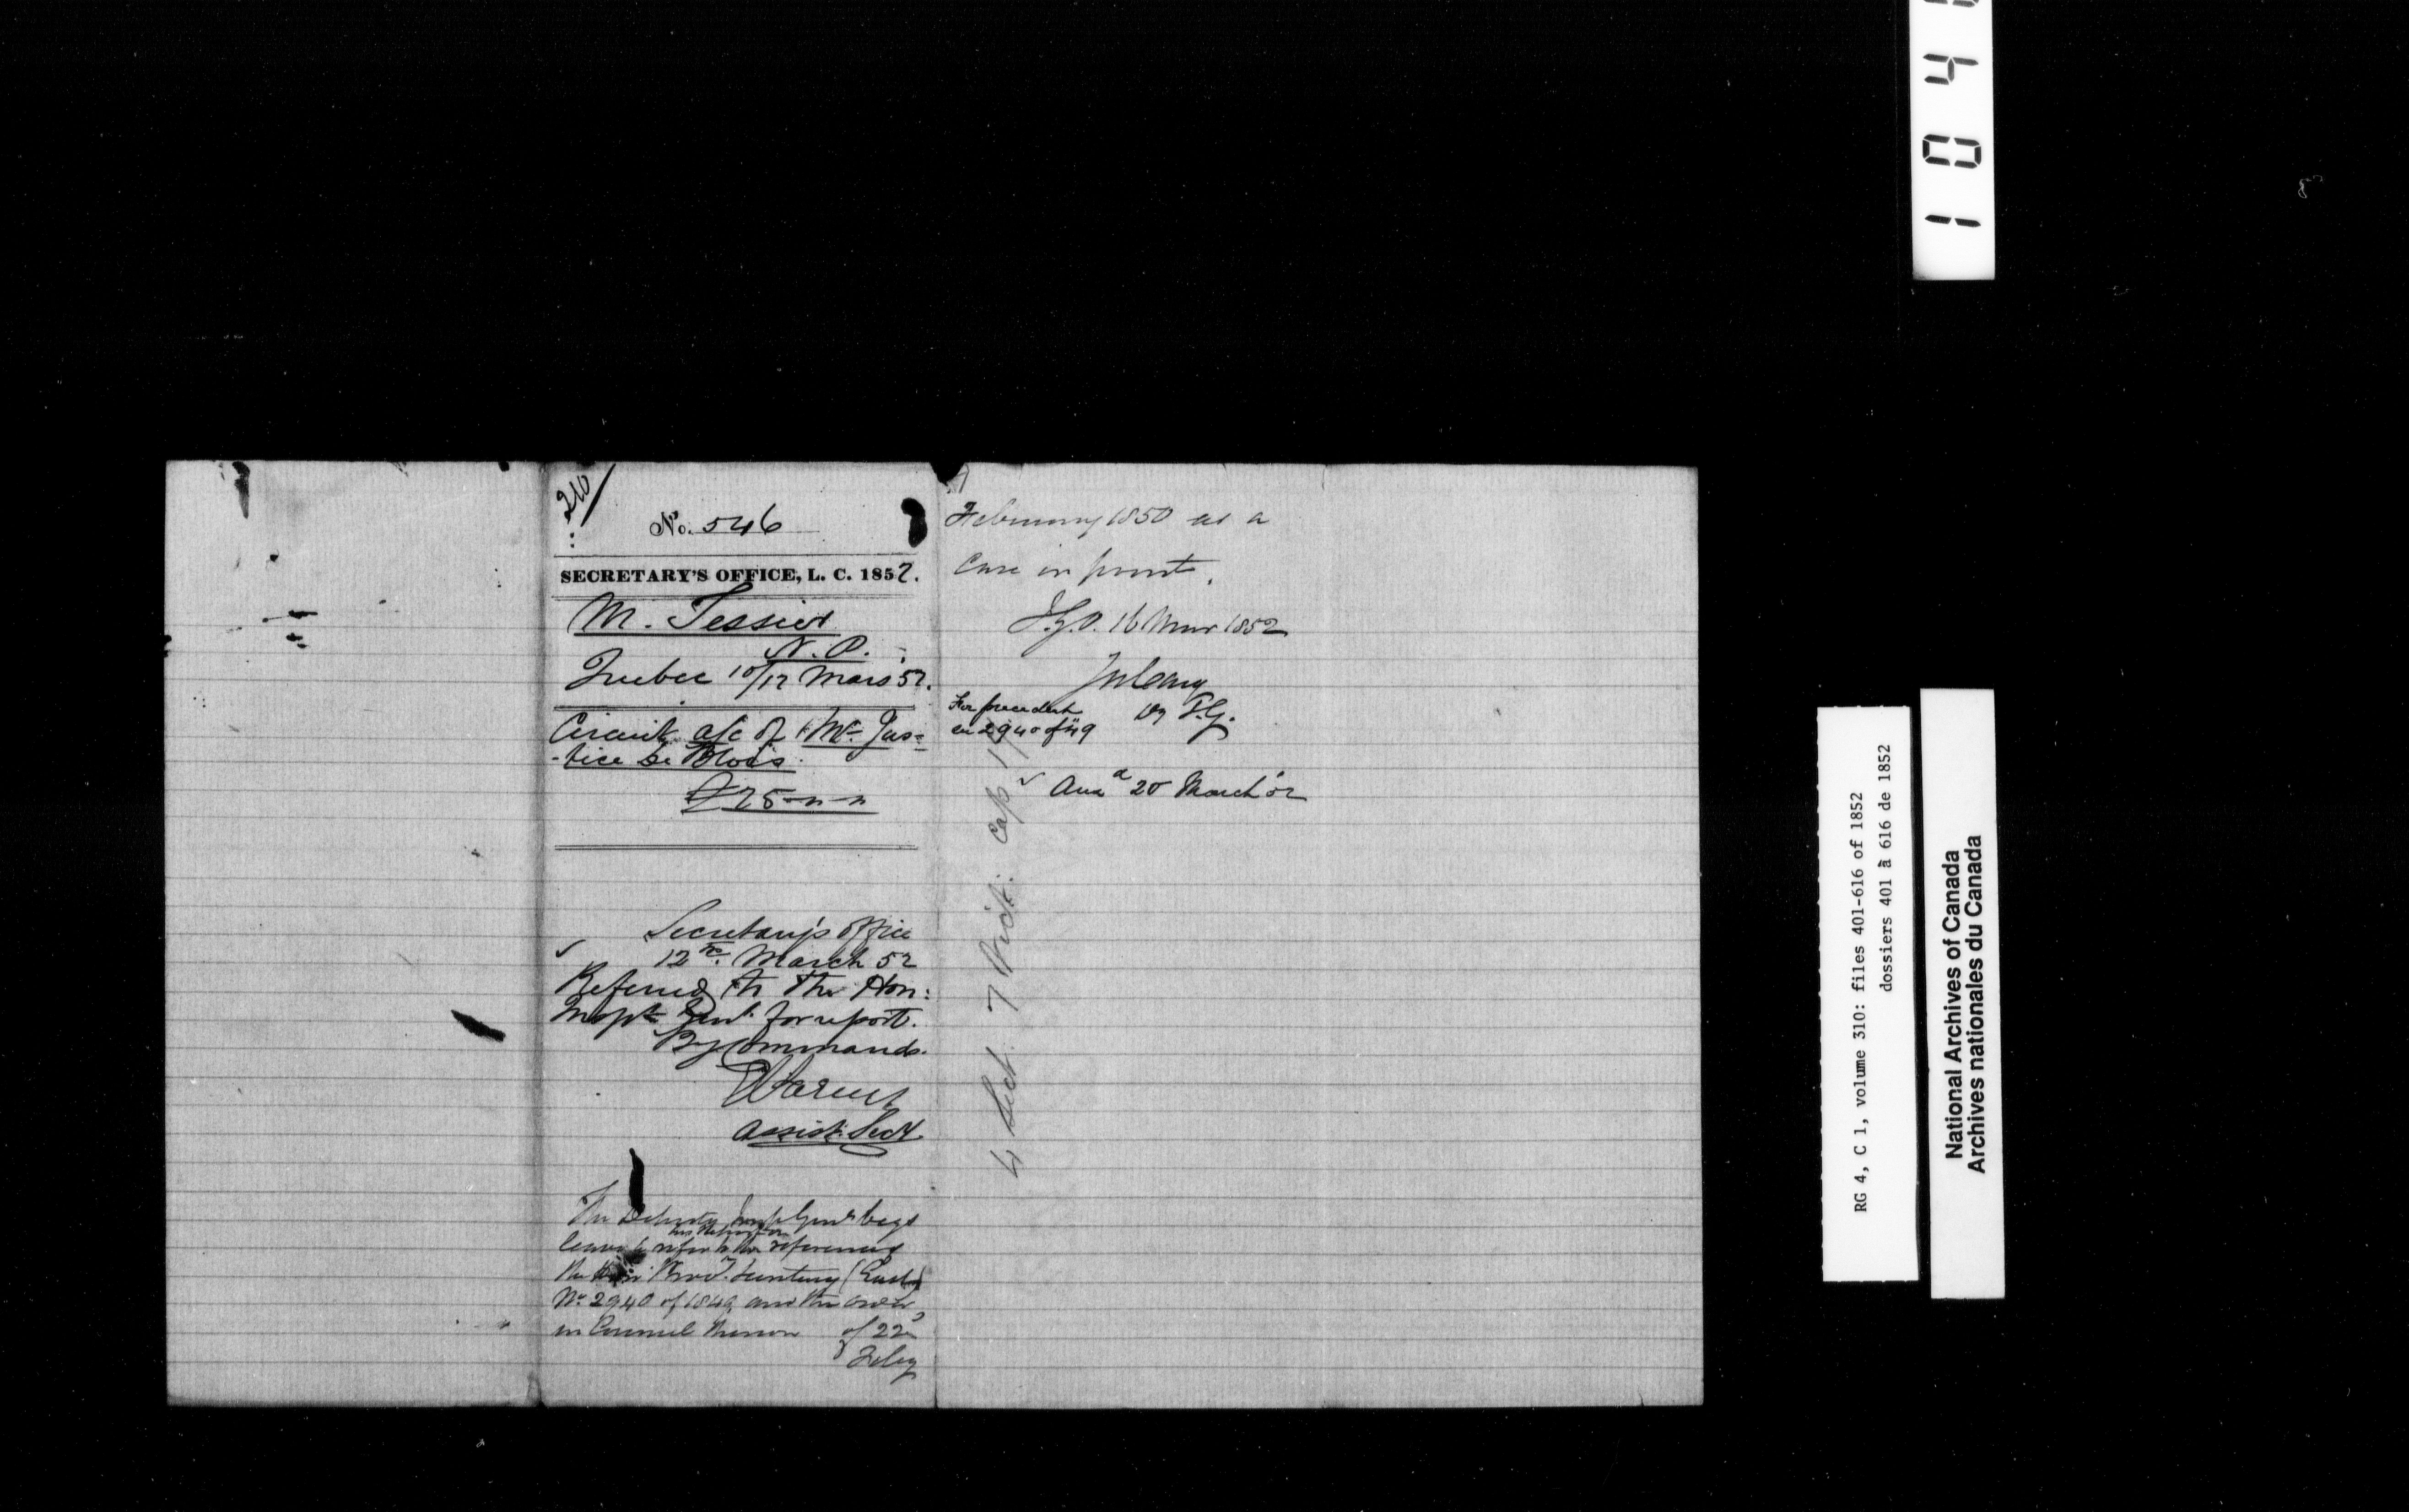 210
No. 546
SECRETARY'S OFFICE, L. C. 1852.
M. Tessier
N. P.
Quebec 10/12 Mars 52.
Circuit a/c of Mr. Jus=
-tice De Blois.
£25-"-"
Secretary's Office
12th March 52
Referred to the Hon:
Insp: Genl. for report.
By Command.
Assist: Secy.
The Deputy Insp Genl begs
leave to refer to the reference
the Hon: Prov. Secretary (East)
No. 2940 of 1849, and the order
in Council thereon of 22d
Feby
February 1850 as a
Case in point.
I.G.O. 16 Mar 1852
JnCary
Dy I.G.
For precedent
see 2940 of 49
Ansd 20 March 52
4 Sect. 7 Vict. cap
1 0 4
RG 4, C 1, volume 310: files 401-616 of 1852
dossiers 401 à 616 de 1852
National Archives of Canada
Archives nationales du Canada